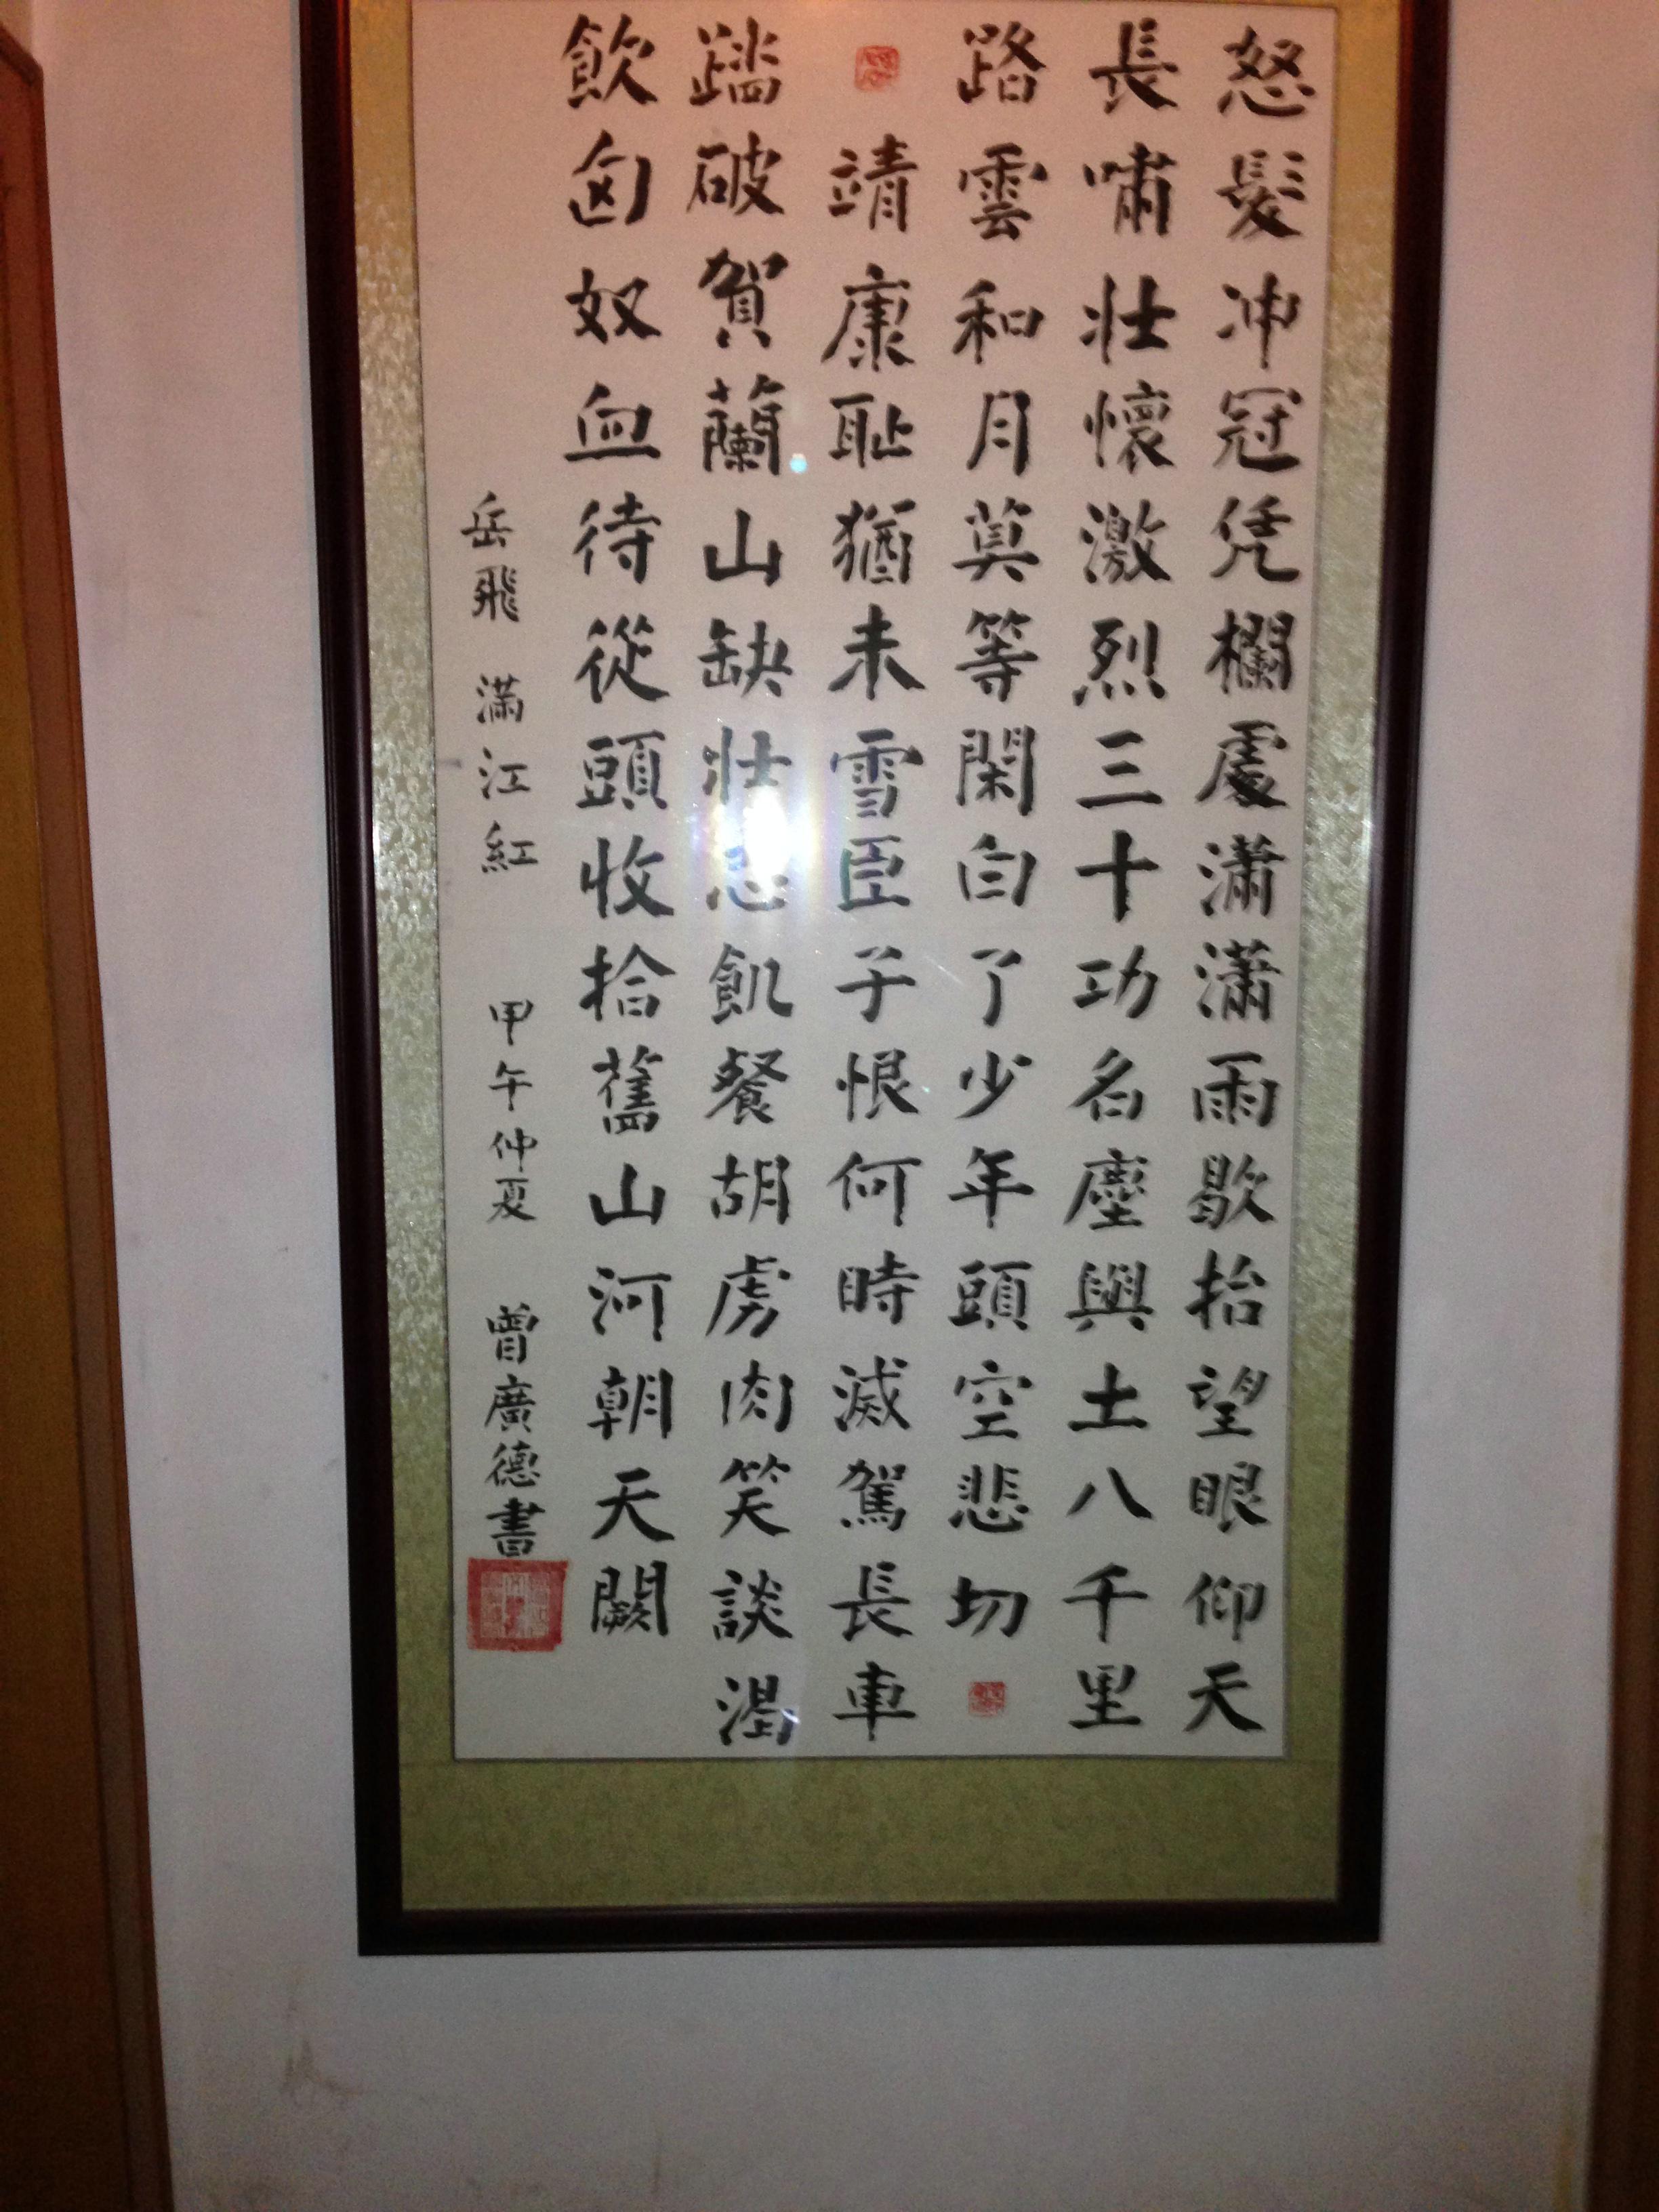 怒髮冲冠凭欄處瀟瀟雨歇抬望眼仰天
長嘯壯懷激烈三十功名塵與土八千里
路雲和月莫等閑白了少年頭空悲切
靖康耻猶未雪臣子恨何時滅駕長車
踏破賀蘭山缺壯志飢餐胡虜肉笑談渴
飲匈奴血待從頭收拾舊山河朝天闕
岳飛 滿江紅 甲午仲夏 曾廣德書